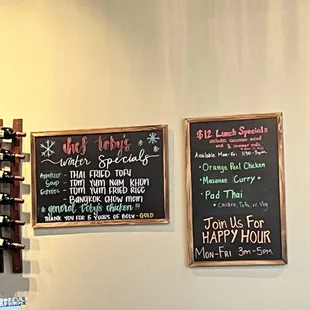 chef toby's
winter specials
Appetizer - THAI FRIED TOFU
Soup - TOM YUM NAM KHON
Entrees - TOM YUM FRIED RICE
- BANGKOK CHOW MEIN
general toby's chicken
THANK YOU FOR 5 YEARS OF BOLY-GOLD
$12 Lunch Specials
includes
and 2 summer rolls
Available Mon-Fri 3pm
• Orange Peel Chicken
• Massaman Curry
• Pad Thai
Chicken, Tofu, or Veg
JOIN US FOR
HAPPY HOUR
MON-FRI 3PM-5PM